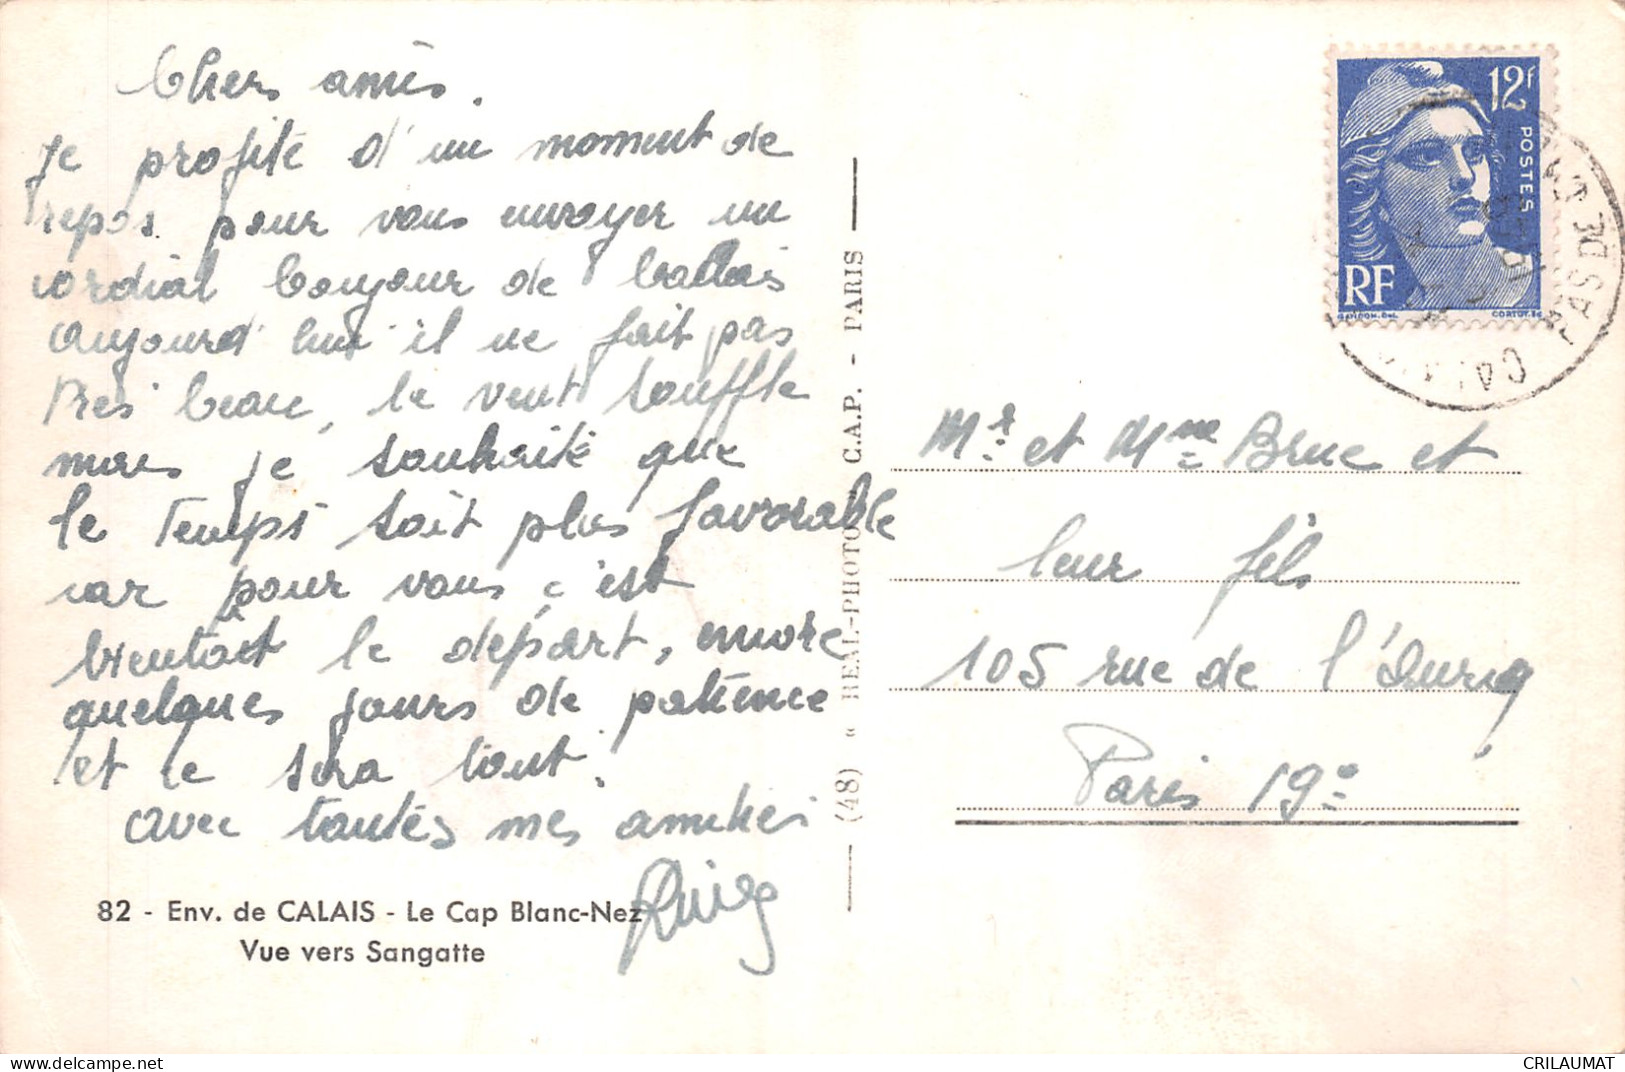 Chers amis.
Je profite d'un moment de
repos pour vous envoyer un
cordial bonjour de Calais
aujourd'hui il ne fait pas
très beau, le vent souffle
mais je souhaite que
le temps soit plus favorable
car pour vous c'est
bientôt le départ, encore
quelques jours de patience
et ce sera tout.
avec toutes mes amitiés
82 - Env. de CALAIS - Le Cap Blanc-Nez
Vue vers Sangatte
(48) « REAL-PHOTO » C.A.P. - PARIS
12f
POSTES
RF
GANDON. DEL.
CORTOT. SC
CALAIS
PAS DE CALAIS
Mr. et Mme Bruc et
leur fils
105 rue de l'Ourcq
Paris 19e
CRILAUMAT